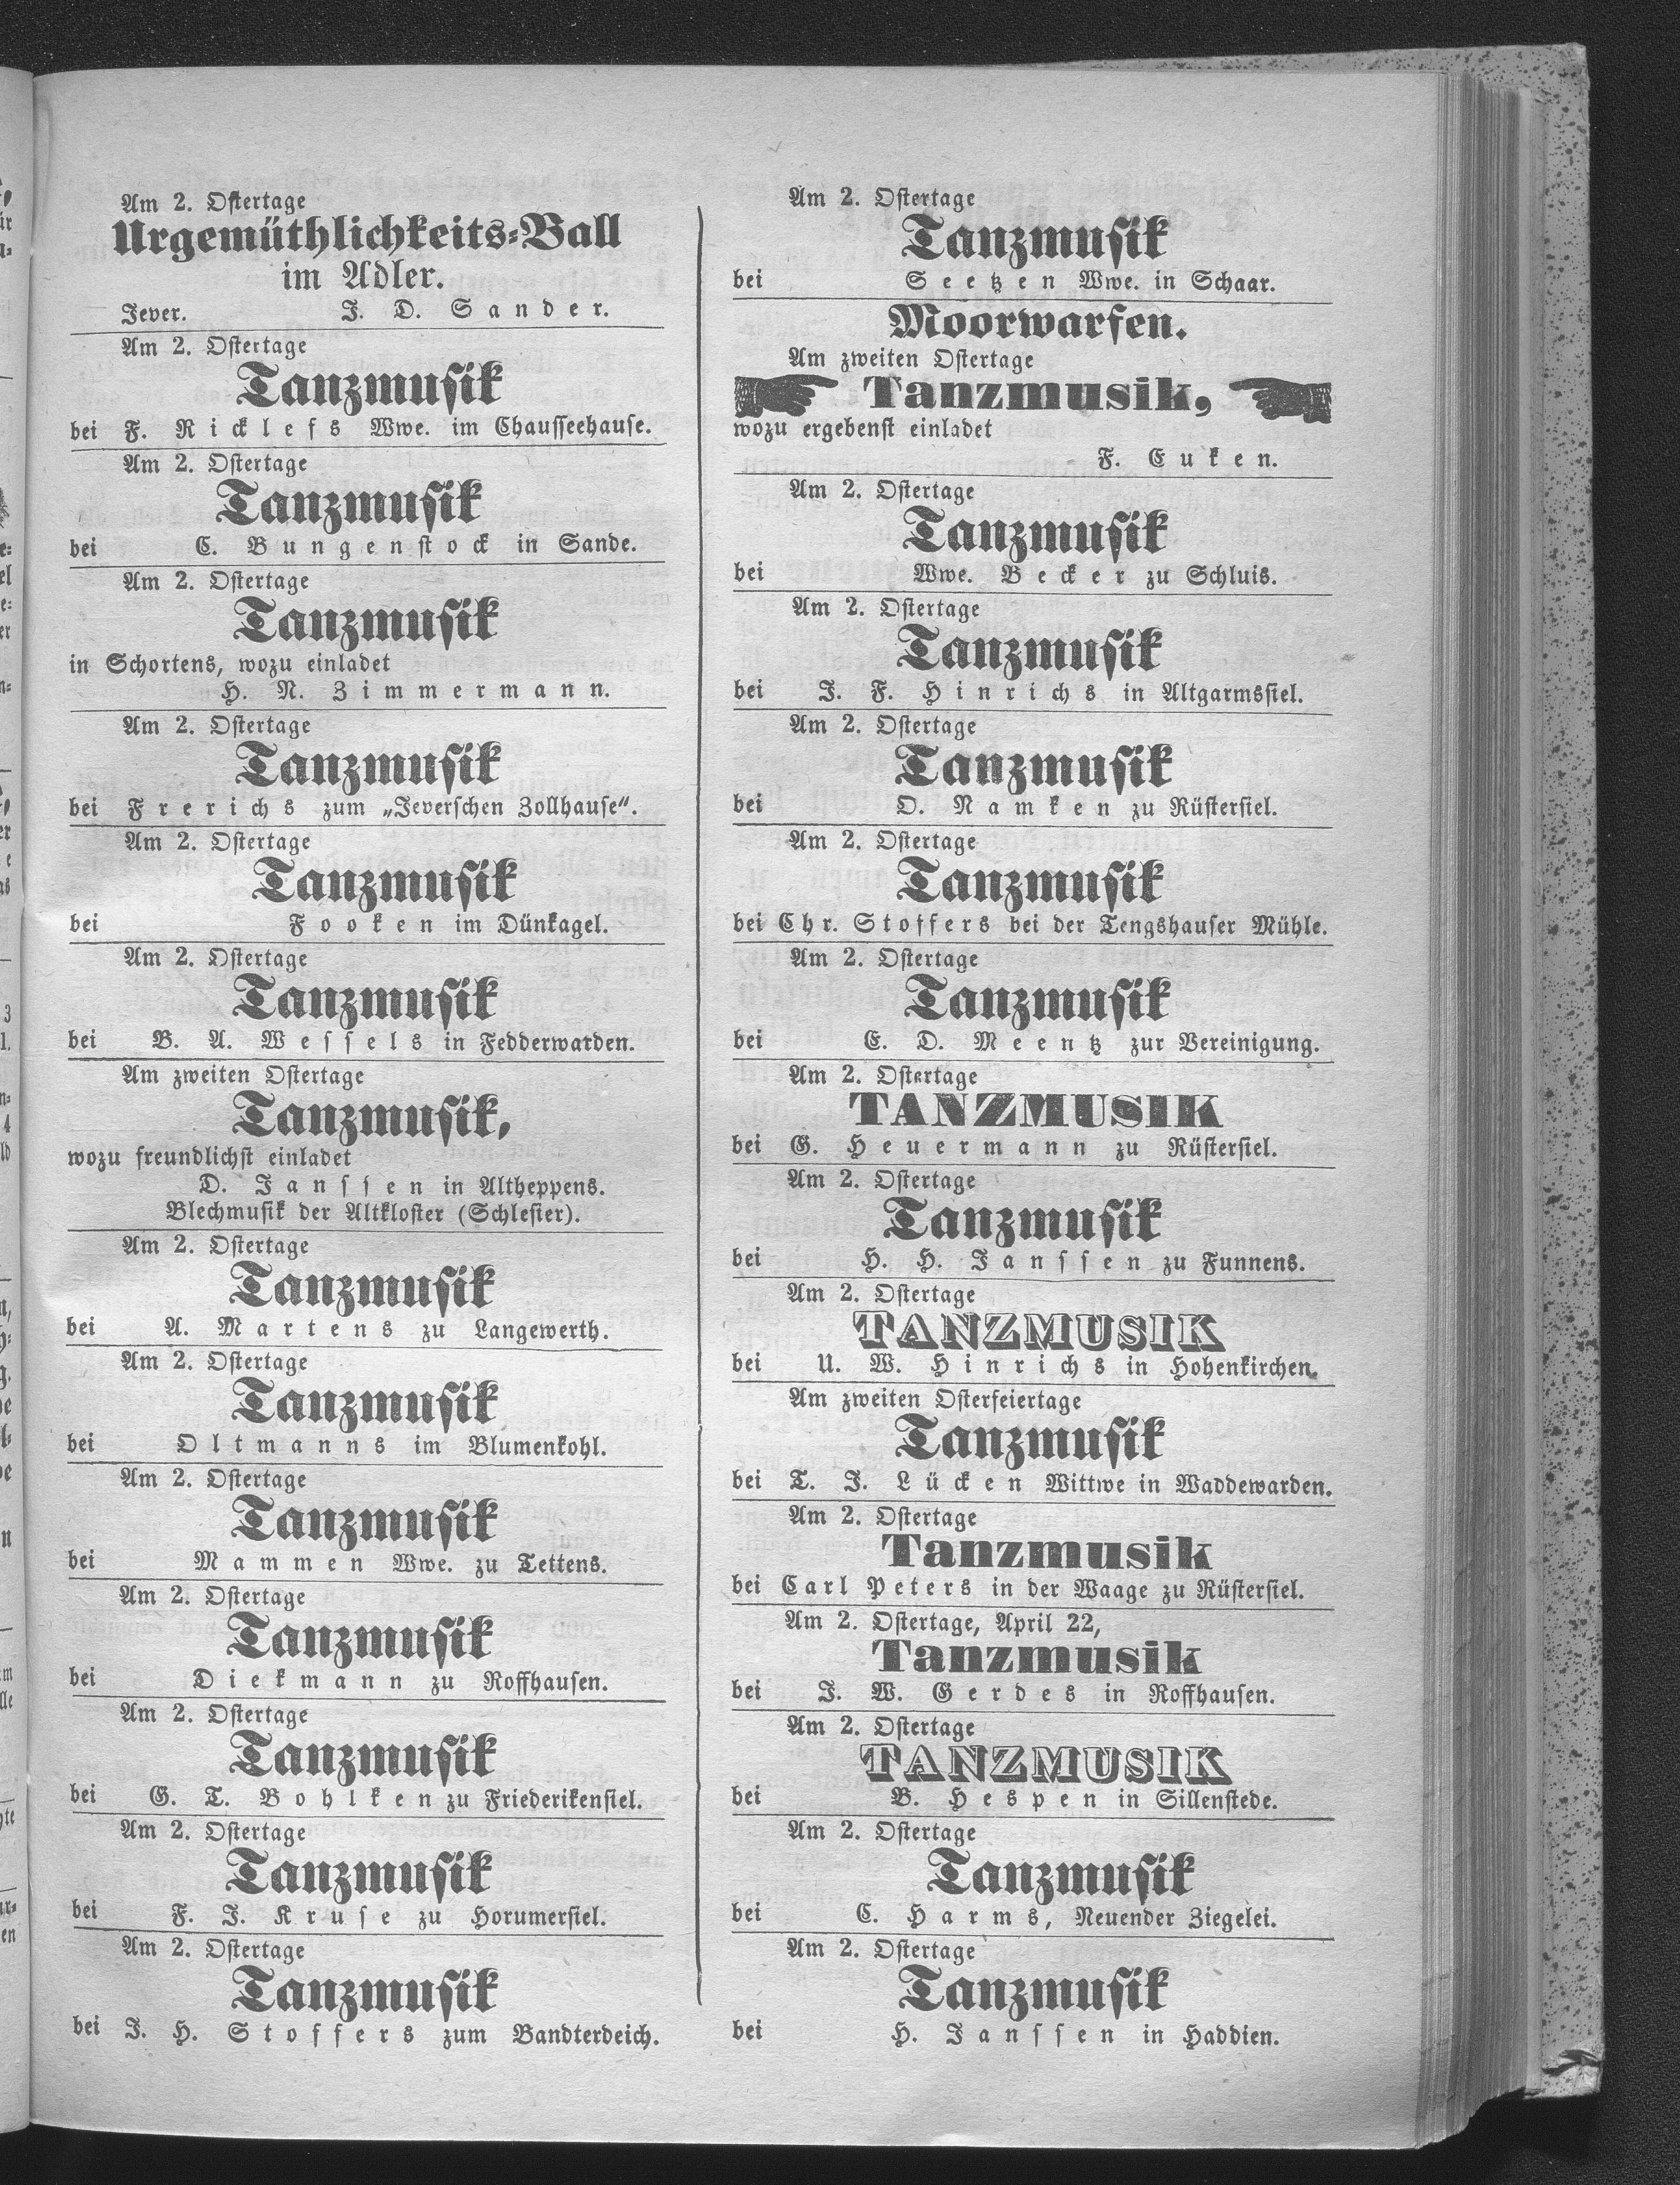 Am 2. Ostertage
Urgemüthlichkeits-Ball
im Adler.
Jever. J. D. Sander.
Am 2. Ostertage
Tanzmusik
bei F. Ricklefs Wwe. im Chausseehause.
Am 2. Ostertage
Tanzmusik
bei C. Bungenstock in Sande.
Am 2. Ostertage
Tanzmusik
in Schortens, wozu einladet
H. N. Zimmermann.
Am 2. Ostertage
Tanzmusik
bei Frerichs zum „Jeverschen Zollhause“.
Am 2. Ostertage
Tanzmusik
bei Fooken im Dünkagel.
Am 2. Ostertage
Tanzmusik
bei B. A. Wessels in Fedderwarden.
Am zweiten Ostertage
Tanzmusik,
wozu freundlichst einladet
D. Janssen in Altheppens.
Blechmusik der Altkloster (Schlesier).
Am 2. Ostertage
Tanzmusik
bei A. Martens zu Langewerth.
Am 2. Ostertage
Tanzmusik
bei Oltmanns im Blumenkohl.
Am 2. Ostertage
Tanzmusik
bei Mammen Wwe. zu Tettens.
Am 2. Ostertage
Tanzmusik
bei Diekmann zu Roffhausen.
Am 2. Ostertage
Tanzmusik
bei G. T. Bohlken zu Friederikensiel.
Am 2. Ostertage
Tanzmusik
bei F. J. Kruse zu Horumersiel.
Am 2. Ostertage
Tanzmusik
bei J. H. Stoffers zum Bandterdeich.
Am 2. Ostertage
Tanzmusik
bei Seetzen Wwe. in Schaar.
Moorwarfen.
Am zweiten Ostertage
Tanzmusik,
wozu ergebenst einladet
F. Euken.
Am 2. Ostertage
Tanzmusik
bei Wwe. Becker zu Schluis.
Am 2. Ostertage
Tanzmusik
bei J. F. Hinrichs in Altgarmssiel.
Am 2. Ostertage
Tanzmusik
bei O. Namken zu Rüstersiel.
Am 2. Ostertage
Tanzmusik
bei Chr. Stoffers bei der Tengshauser Mühle.
Am 2. Ostertage
Tanzmusik
bei E. D. Meentz zur Vereinigung.
Am 2. Ostertage
TANZMUSIK
bei G. Heuermann zu Rüstersiel.
Am 2. Ostertage
Tanzmusik
bei H. H. Janssen zu Funnens.
Am 2. Ostertage
TANZMUSIK
bei U. W. Hinrichs in Hohenkirchen.
Am zweiten Osterfeiertage
Tanzmusik
bei T. J. Lücken Wittwe in Waddewarden.
Am 2. Ostertage
Tanzmusik
bei Carl Peters in der Waage zu Rüstersiel.
Am 2. Ostertage, April 22,
Tanzmusik
bei J. W. Gerdes in Roffhausen.
Am 2. Ostertage
TANZMUSIK
bei B. Hespen in Sillenstede.
Am 2. Ostertage
Tanzmusik
bei C. Harms, Neuender Ziegelei.
Am 2. Ostertage
Tanzmusik
bei H. Janssen in Haddien.